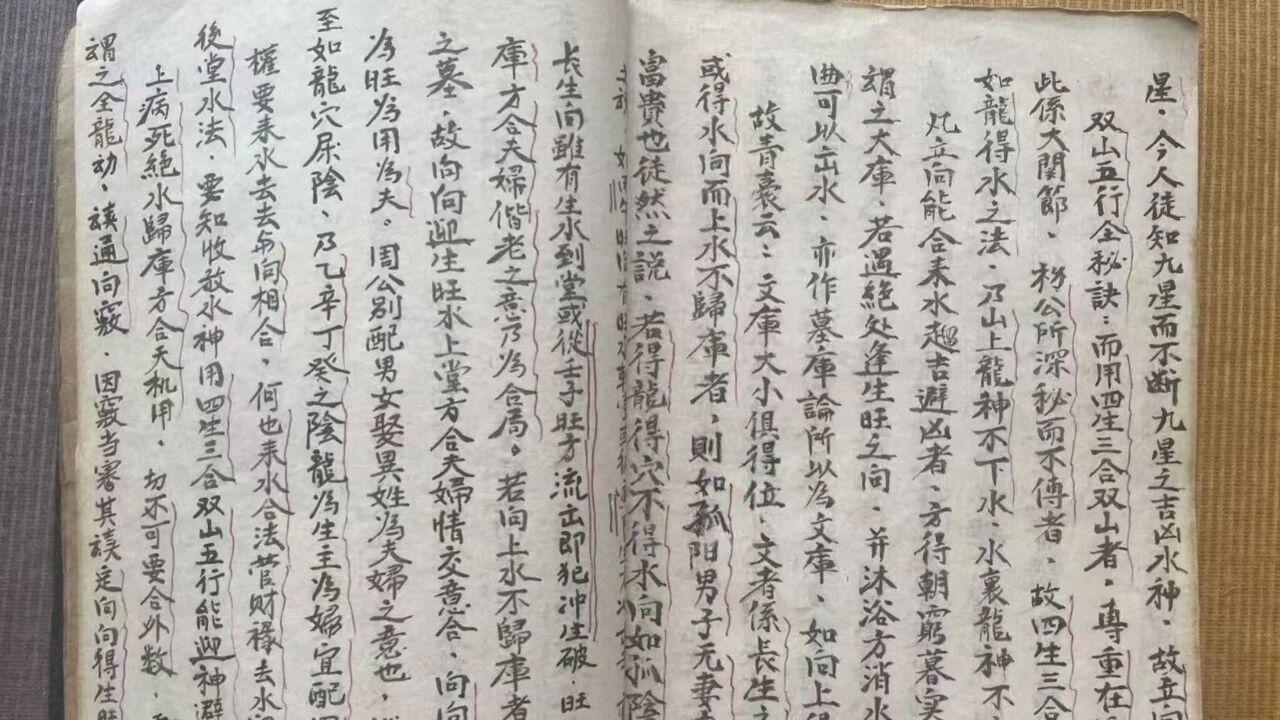 星、今人徒知九星而不断九星之吉凶水神、故立向
双山五行全秘訣：而用四生三合双山者，專重在
此係大関節、杨公所深秘而不傳者、故四生三合
如龍得水之法、乃山上龍神不下水、水裏龍神不
凡立向能合来水趨吉避凶者、方得朝窮暮实
謂之大庫、若遇絕处逢生旺之向、并沐浴方消水
可以出水、亦作墓庫論所以為文庫、如向上得
故青囊云：文庫大小俱得位、文者係長生之
或得水向而上水不歸庫者，則如孤阳男子无妻
富貴也徒然之說、若得龍得穴不得水向如孤陰
長生向雖有生水到堂或從壬子旺方流出即犯冲生破旺
庫方合夫婦偕老之意乃為合局。若向上水不歸庫者
之墓、故向向迎生旺水上堂方合夫婦情交意合、向向
為旺為用為夫。周公別配男女娶異姓為夫婦之意也，
至如龍穴屌陰、乃乙辛丁癸之陰龍為生主為婦宜配
權要来水去去向相合、何也来水合法营財祿去水
後堂水法、要知收放水神用四生三合双山五行能迎神避
上病死絕水歸庫方合天机用、切不可要合外数、
謂之全龍动、
通向竅、因竅当審其
定向向得生旺